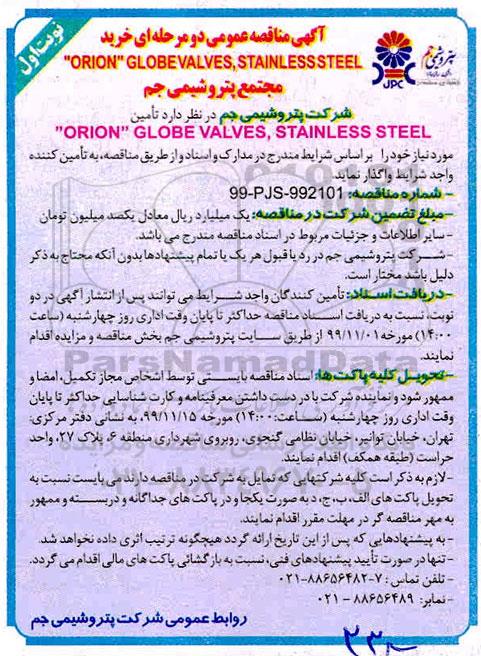 نوبت اول
آگهی مناقصه عمومی دو مرحله ای خرید
"ORION" GLOBE VALVES, STAINLESS STEEL
مجتمع پتروشیمی جم
پتروشیمی جم
JPC
شرکت پتروشیمی جم در نظر دارد تأمین
"ORION" GLOBE VALVES, STAINLESS STEEL
مورد نیاز خود را بر اساس شرایط مندرج در مدارک و اسناد و از طریق مناقصه، به تأمین کننده
واجد شرایط واگذار نماید.
- شماره مناقصه: 99-PJS-992101
- مبلغ تضمین شرکت در مناقصه: یک میلیارد ریال معادل یکصد میلیون تومان
- سایر اطلاعات و جزئیات مربوط در اسناد مناقصه مندرج می باشد.
- شرکت پتروشیمی جم در رد یا قبول هر یک یا تمام پیشنهادها بدون آنکه محتاج به ذکر
دلیل باشد مختار است.
- دریافت اسناد: تأمین کنندگان واجد شرایط می توانند پس از انتشار آگهی در دو
نوبت، نسبت به دریافت اسناد مناقصه حداکثر تا پایان وقت اداری روز چهارشنبه (ساعت
۱۴:۰۰) مورخه ۹۹/۱۱/۰۱ از طریق سایت پتروشیمی جم بخش مناقصه و مزایده اقدام
نمایند.
ParsNamadData
- تحویل کلیه پاکت ها: اسناد مناقصه بایستی توسط اشخاص مجاز تکمیل، امضا و
ممهور شود و نماینده شرکت با در دست داشتن معرفینامه و کارت شناسایی حداکثر تا پایان
وقت اداری روز چهارشنبه (ساعت: ۱۴:۰۰) مورخه ۹۹/۱۱/۱۵، به نشانی دفتر مرکزی:
تهران، خیابان توانیر، خیابان نظامی گنجوی، روبروی شهرداری منطقه ۶، پلاک ۲۷، واحد
حراست (طبقه همکف) اقدام نمایند.
- لازم به ذکر است کلیه شرکتهایی که تمایل به شرکت در مناقصه دارند می بایست نسبت به
تحویل پاکت های الف، ب، ج، د به صورت یکجا و در پاکت های جداگانه و دربسته و ممهور
به مهر مناقصه گر در مهلت مقرر اقدام نمایند.
- به پیشنهادهایی که پس از این تاریخ ارائه گردد هیچگونه ترتیب اثری داده نخواهد شد.
- تنها در صورت تأیید پیشنهادهای فنی، نسبت به بازگشائی پاکت های مالی اقدام می گردد.
- تلفن تماس: ۷-۸۸۶۵۶۴۸۲-۰۲۱
- نمابر: ۸۸۶۵۶۴۸۹ - ۰۲۱
روابط عمومی شرکت پتروشیمی جم